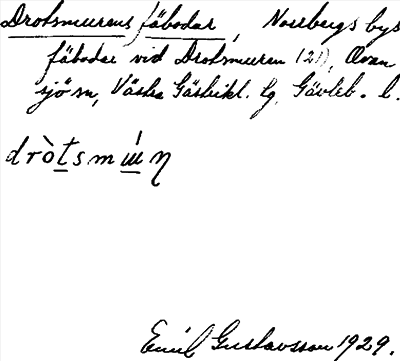 Drotsmurens fäbodar, Norrbergs bys
fäbodar vid Drotsmuren (21), Ovan
sjö sn, Västra Gästrikl. tg, Gävleb. l.
dròtsmúɯ̲ƞ
Emil Gustavsson 1929.